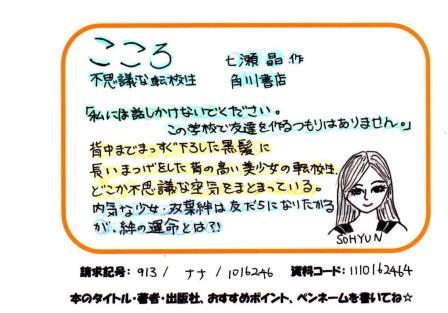 こころ
七瀬 晶 作
不思議な転校生 角川書店
「私には話しかけないでください。
この学校で友達を作るつもりはありません。」
背中までまっすぐ下ろした黒髪に
長いまつげをした背の高い美少女の転校生。
どこか不思議な空気をまとまっている。
内気な少女・双葉絆は友だちになりたがる
が、絆の運命とは?!
SOHYUN
請求記号: 913 / ナナ / 1016246 資料コード: 1110162464
本のタイトル・著者・出版社、おすすめポイント、ペンネームを書いてね☆